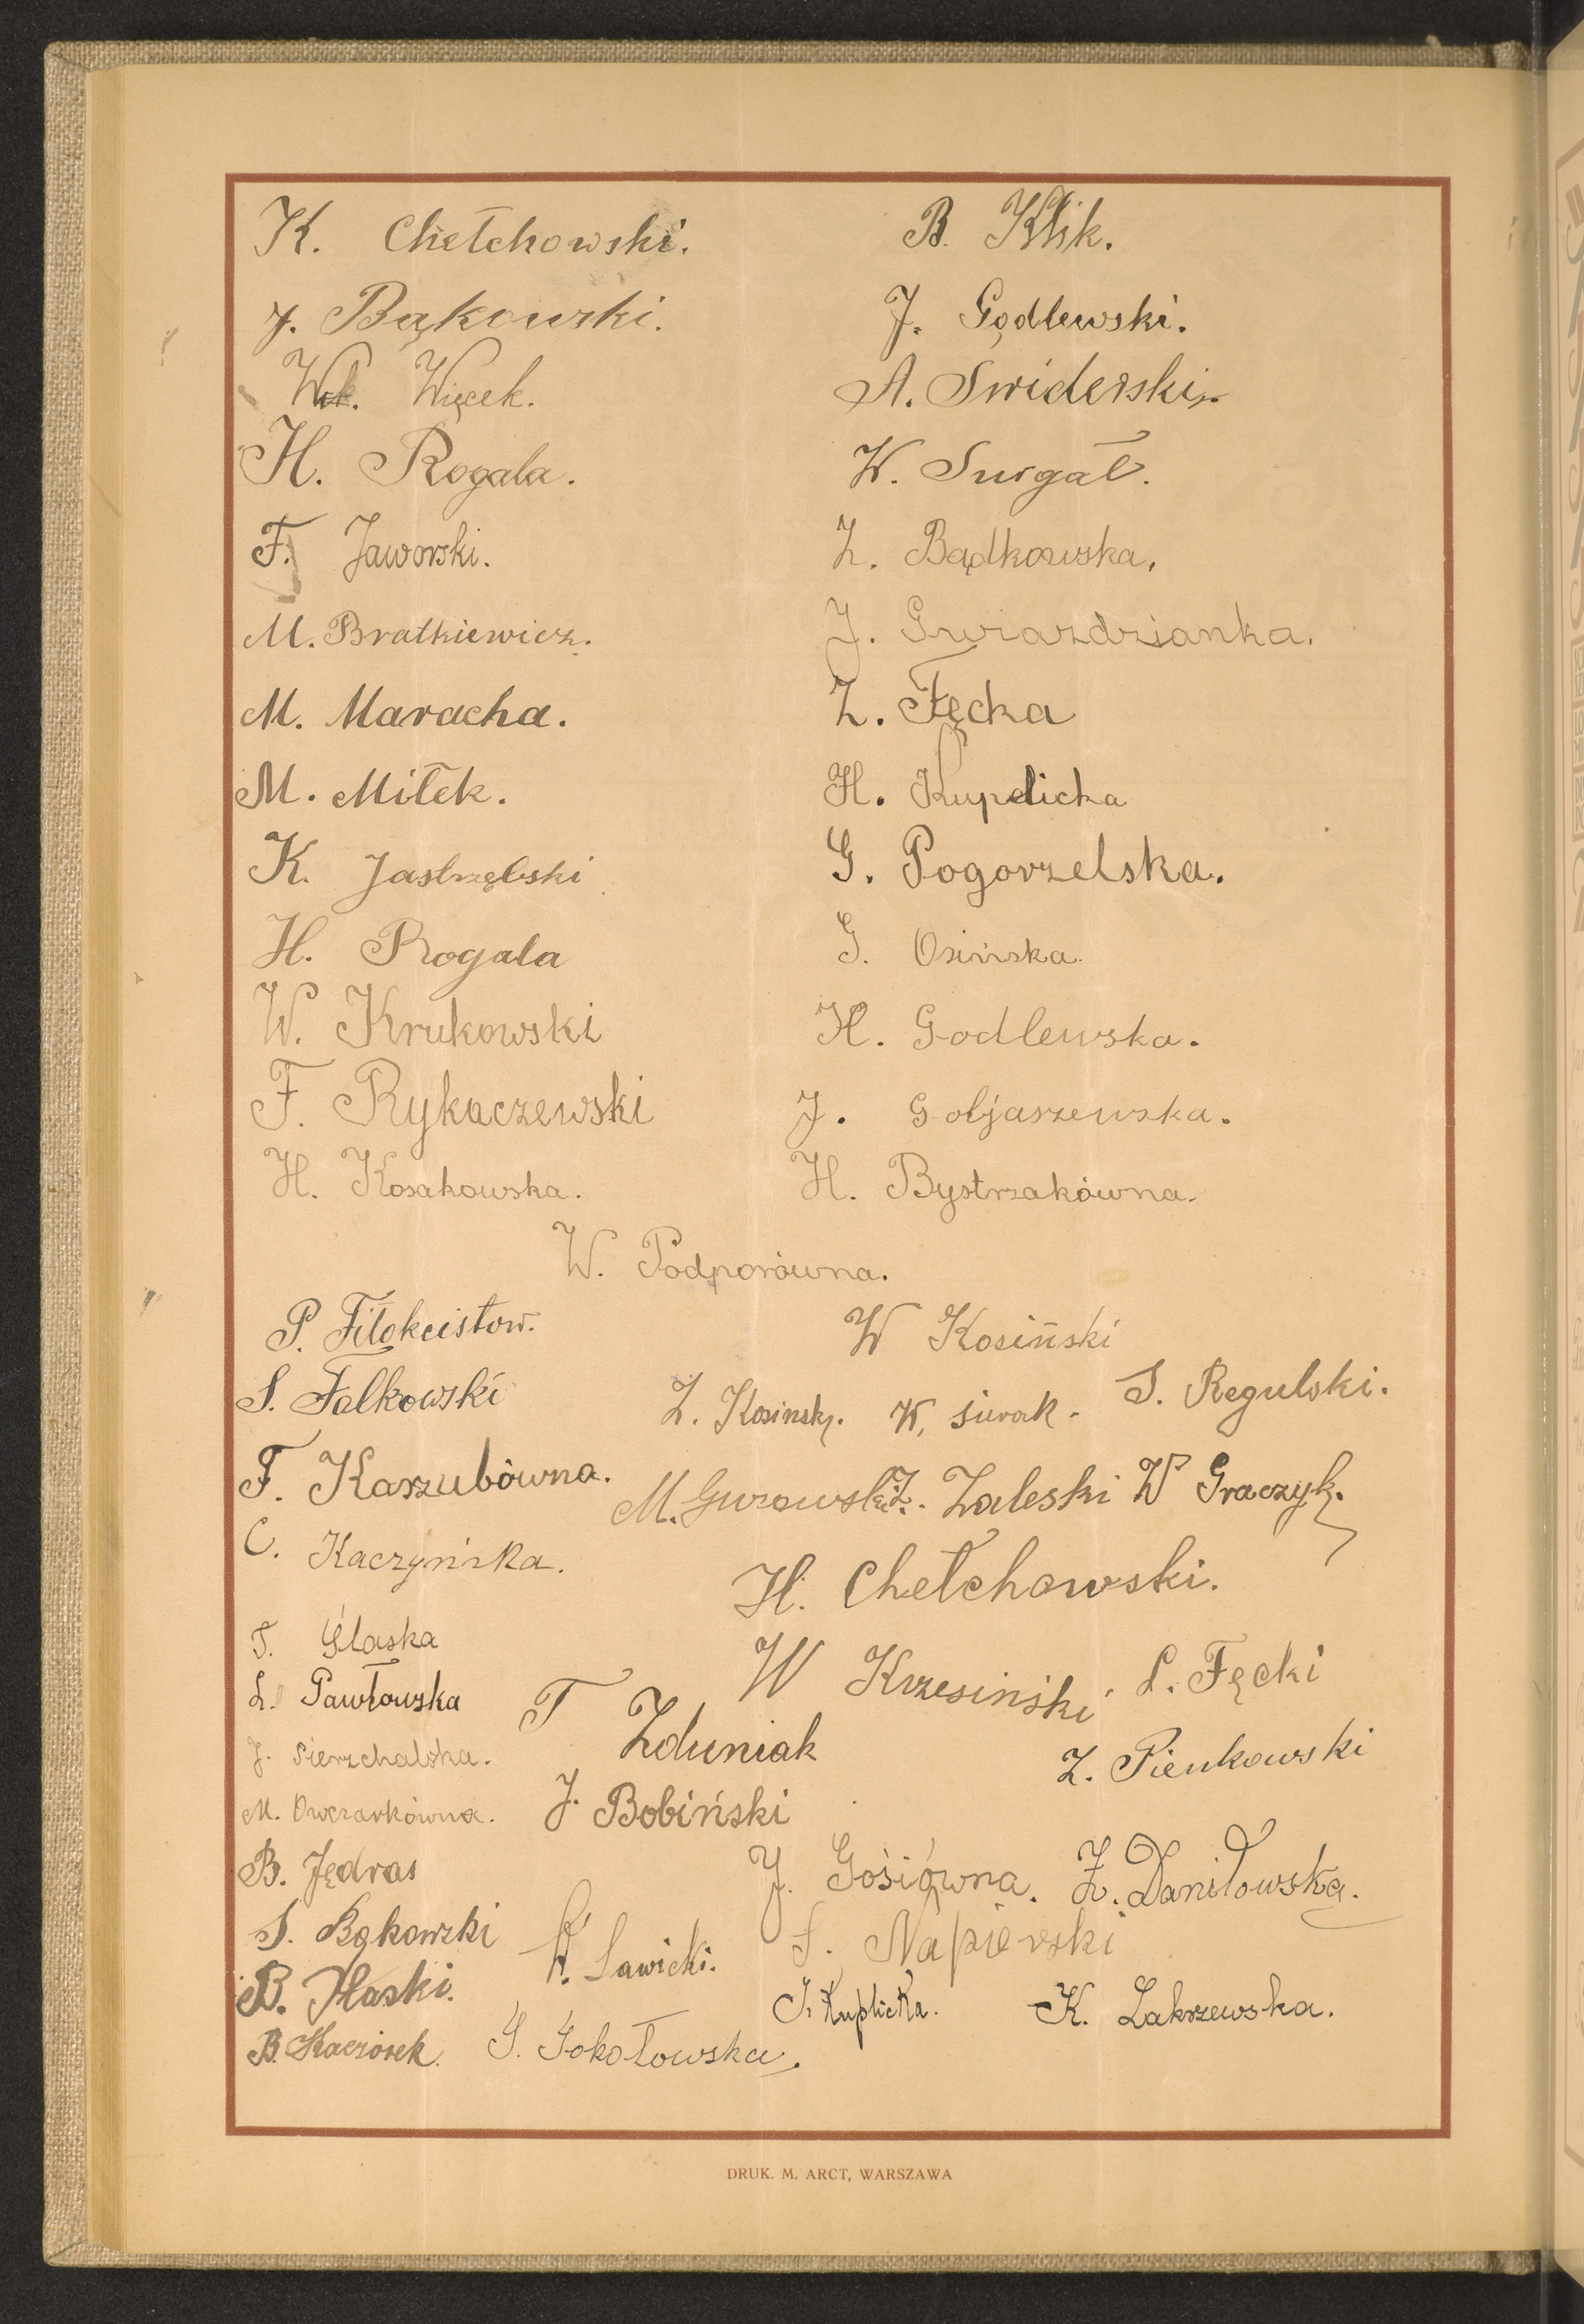 K. Chełchowski. B. Klik.
J. Bąkowski. J. Gądlewski.
W. Więcek. A. Swiderski.
H. Rogala. W. Surgał.
F. Jaworski. Z. Bądkowska.
M. Bratkiewicz. J. Gwiazdzianka.
M. Maracha. Z. Fęcka
M. Miłek. H. Kupelicka
K. Jastrzębski G. Pogorzelska.
H. Rogala G. Osińska.
W. Krukowski H. Godlewska.
F. Rykaczewski J. Goljaszewska.
H. Kosakowska. H. Bystrzakówna.
W. Podporówna.
P. W Kosiński
S. Falkowski Z. Kosinski. K. siwak. S. Regulski.
F. Kaszubówna. M. Gurowski Z. Zaleski W Graczyk.
C. Kaczyńska. H. Chełchowski.
T. Ślaska W Krzesiński L. Fęcki
L. Pawłowska T Zduniak Z. Pienkowski
J. Pierzchalska. J. Bobiński
M. Owczarkówna.
B. Jędras J. Gosiówna. Z. Daniłowska.
S. Bąkowski K. Sawicki. S. Napierski
B. Płaski. J. Kuplicka. K. Zakrzewska.
B. Kaczorek. S. Sokołowska.
DRUK. M. ARCT, WARSZAWA